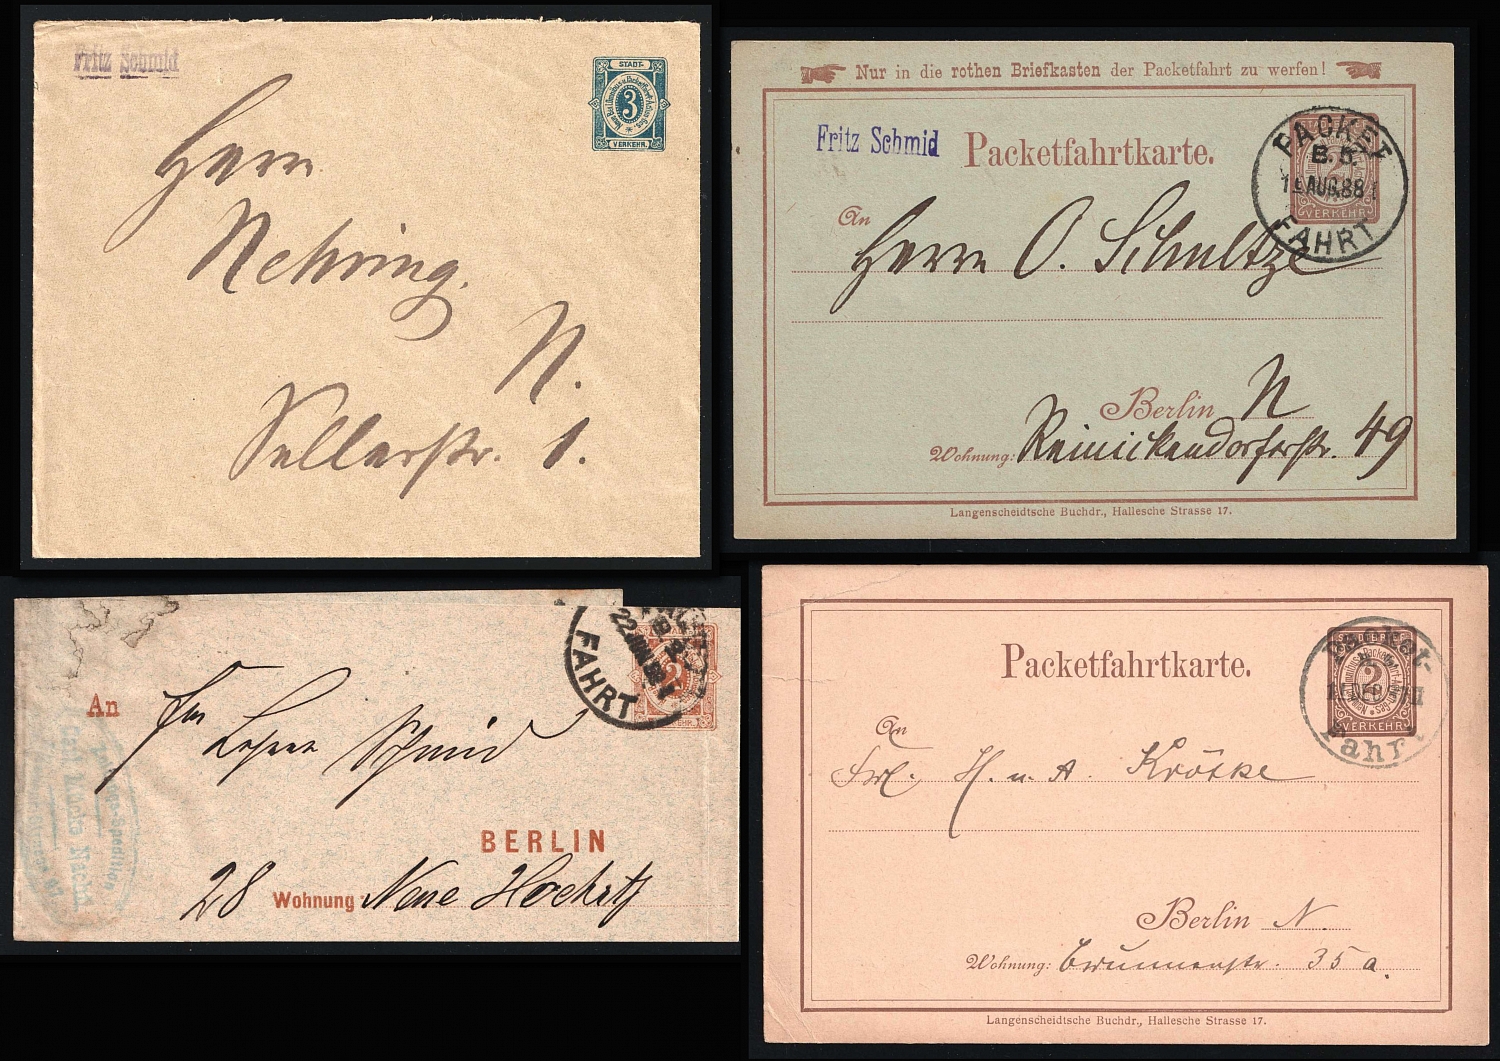 Fritz Schmid
STADT-
3
VERKEHR.
Herrn
Nehring,
N.
Sellerstr. 1.
Nur in die rothen Briefkasten der Packetfahrt zu werfen!
Fritz Schmid
Packetfahrtkarte.
PACKET
B. 5.
AUG. 88
FAHRT
2
VERKEHR
An
Herrn O. Schultze
Berlin N
Wohnung: Reinickendorferstr. 49
Langenscheidtsche Buchdr., Hallesche Strasse 17.
FAHRT
An
Lehrer Schmid
BERLIN
28 Wohnung Neue Hochstr
Packetfahrtkarte.
STADTBRIEF
2
VERKEHR
Packet-
Fahrt
An
H. u. A. Krötke
Berlin N.
Wohnung: Brunnenstr. 35 a.
Langenscheidtsche Buchdr., Hallesche Strasse 17.